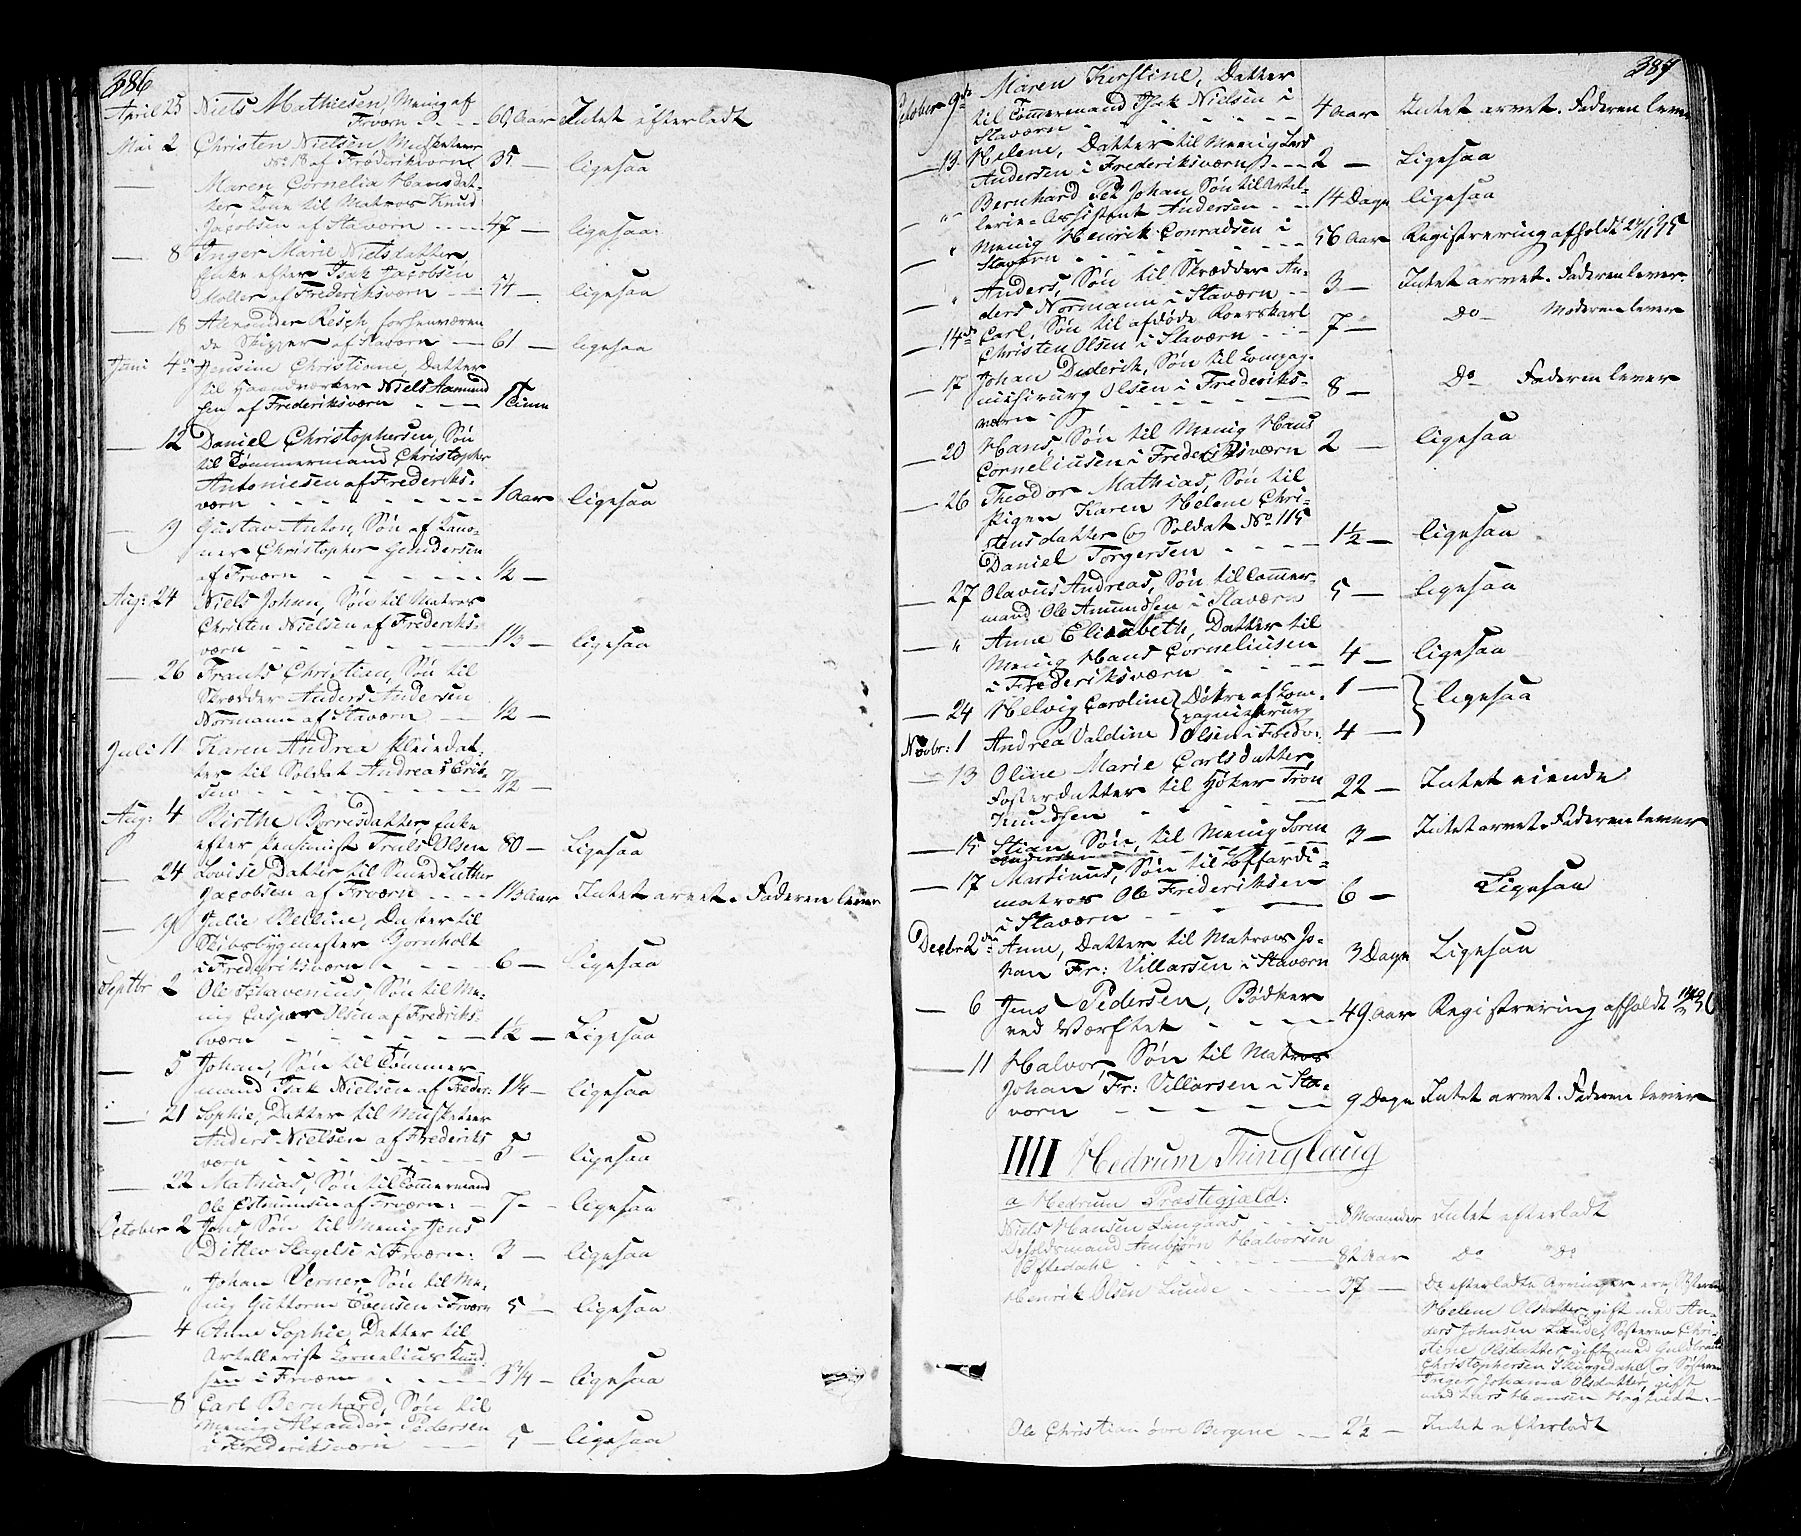 386
April 25 Niels Mathiesen, Menig af
Frværn 69 Aar Intet efterladt
Mai 2 Christen Nielsen Musketeer
No 18 af Frederiksværn 35 — ligesaa
— Maren Cornelia Hansdat-
ter Kone til Matros Knud
Jacobsen af Staværn 47 — ligesaa
— 8 Inger Marie Nielsdatter,
Enke efter Isak Jacobsen
Møller af Frederiksværn 74 — ligesaa
— 18 Alexander Resch forhenværen
de Skipper af Staværn 61 — ligesaa
Juni 4de Jensine Christiane, Datter
til Haandværker Niels Aamund
sen af Frederiksværn 1 Time
— 12 Daniel Christophersen, Søn
til Tømmermand Christopher
Antoniesen af Frederiks-
værn 1 Aar ligesaa
— 9 Gustav Anton, Søn af Kano-
ner Christopher Gundersen
af Frværn 1/2 —
Aug: 24 Niels Johan, Søn til Matros
Christen Nielsen af Frederiks-
værn 1 1/3 — ligesaa
— 26 Frants Christian, Søn til
Skrædder Anders Andersen
Normann af Staværn 1/2 —
Juli 11 Karen Andrea Pleiedat-
ter til Soldat Andreas Eriks
sen 7/2 —
Aug: 4 Birthe Børresdatter, Enke
efter Pensionist Truls Olsen 80 — Ligesaa
— 24 Lovise Datter til Smed Luther
Jacobsen af Frværn 1 1/3 Aar Intet arvet. Faderen lever
— 19 Julie Belline, Datter til
Skibsbygmester Bjornholt
i Frederiksværn 6 — Ligesaa
Septbr 2 Ole Schavenius, Søn til Me-
nig Casper Olsen af Fredriks-
værn 1 1/2 — Ligesaa
— 5 Johan, Søn til Tømmer-
mand Isak Nielsen af Feder: 1 1/4 — ligesaa
— 21 Sophie, Datter til Musketeer
Anders Nielsen af Frederiks
værn 5 — ligesaa
— 22 Mathias, Søn til Tømmermand
Ole Estmundsen af Frværn: 7 — ligesaa
October 2 Jens, Søn til Menig Jens
Ditlev Slagelse i Frværn: 3 — ligesaa
" Johan Verner, Søn til Me-
nig Guttorm Evensen i Frværn 5 — ligesaa
— 4 Anne Sophie, Datter til
Artellerist Cornelius Knud-
sen i Frværn 3 1/4 — ligesaa
— 8 Carl Bernhard, Søn til
Menig Alexander Pedersen
i Frederiksværn 5 — ligesaa
387
October 9de Maren Kirstine, Datter
til Tømmermand Isak Nielsen i
Staværn 4 Aar Intet arvet. Faderen lever
— 13 Helene, Datter til Menig Lars
Andersen i Frederiksværn 2 — Ligesaa
— " Bernhard Pet Johan, Søn til Artel-
lerie-Assistent Andersen 14 Dage ligesaa
— " Menig Henrik Conradsen i
Staværn 56 Aar Registrering afholdt 27/11 35
— " Anders, Søn til Skrædder An-
ders Normann i Staværn 3 — Intet arvet. Faderen lever.
— 14de Carl, Søn til afdøde Roerskarl
Christen Olsen i Staværn 7 — Do — Moderen lever
— 17 Johan Diderik, Søn til Compag-
nichirurg Olsen i Frederiks-
værn 8 — Do Faderen lever
— 20 Hans, Søn til Menig Hans
Corneliusen i Frederiksværn 2 — ligesaa
— 26 Theodor Mathias, Søn til
Pigen Karen Helene Chri-
stensdatter og Soldat No 115
Daniel Torgersen 1 1/2 — ligesaa
— 27 Olavus Andreas, Søn til Tømmer-
mand Ole Amundsen i Staværn 5 — ligesaa
— " Anne Elisabeth, Datter til
Menig Hans Corneliusen
i Frederiksværn 4 — ligesaa
— 24 Helvig Caroline } Døtre af Com- 1 — } ligesaa
pagnichirurg
Novbr: 1 Andrea Valdine } Olsen i Fredv: 4 —
— 13 Oline Marie Carlsdatter
Fosterdatter til Høker Tron
Knudsen 22 — Intet eiende
— 15 Stian, Søn, til Menig Søren
Andersen 3 — Intet arvet. Faderen lever
— 17 Martinus, Søn til Coffardi-
matros Ole Frederiksen
i Staværn 6 — Ligesaa
Decbr 2den Anne, Datter til Matros Jo-
han Fr: Villarsen i Staværn 3 Dage Ligesaa
— 6 Jens Pedersen, Bødker
ved Værftet 49 Aar Registrering afholdt
— 11 Halvor, Søn til Matros
Johan Fr: Villarsen i Sta-
værn 9 Dage Intet arvet. Faderen lever
IIII Hedrum Thinglaug
a Hedrum Præstegjæld:
Niels Hansen Lingaas 8 Maaneder Intet efterladt
Opholdsmand Anbjørn Halvorsen
Oftedahl 82 Aar Do Do
Henrik Olsen Lunde 37 — De efterladte Arvinger ere, Søsteren
Helene Olsdatter gift med An-
ders Johnsen Lunde, Søsteren Chri-
stene Olsdatter gift med Guldbrand
Christophersen Skinsdahl og Søsteren
Inger Johanna Olsdatter, gift
med Lars Hansen
Ole Christian øvre Bergene 2 1/2 — Intet efterladt